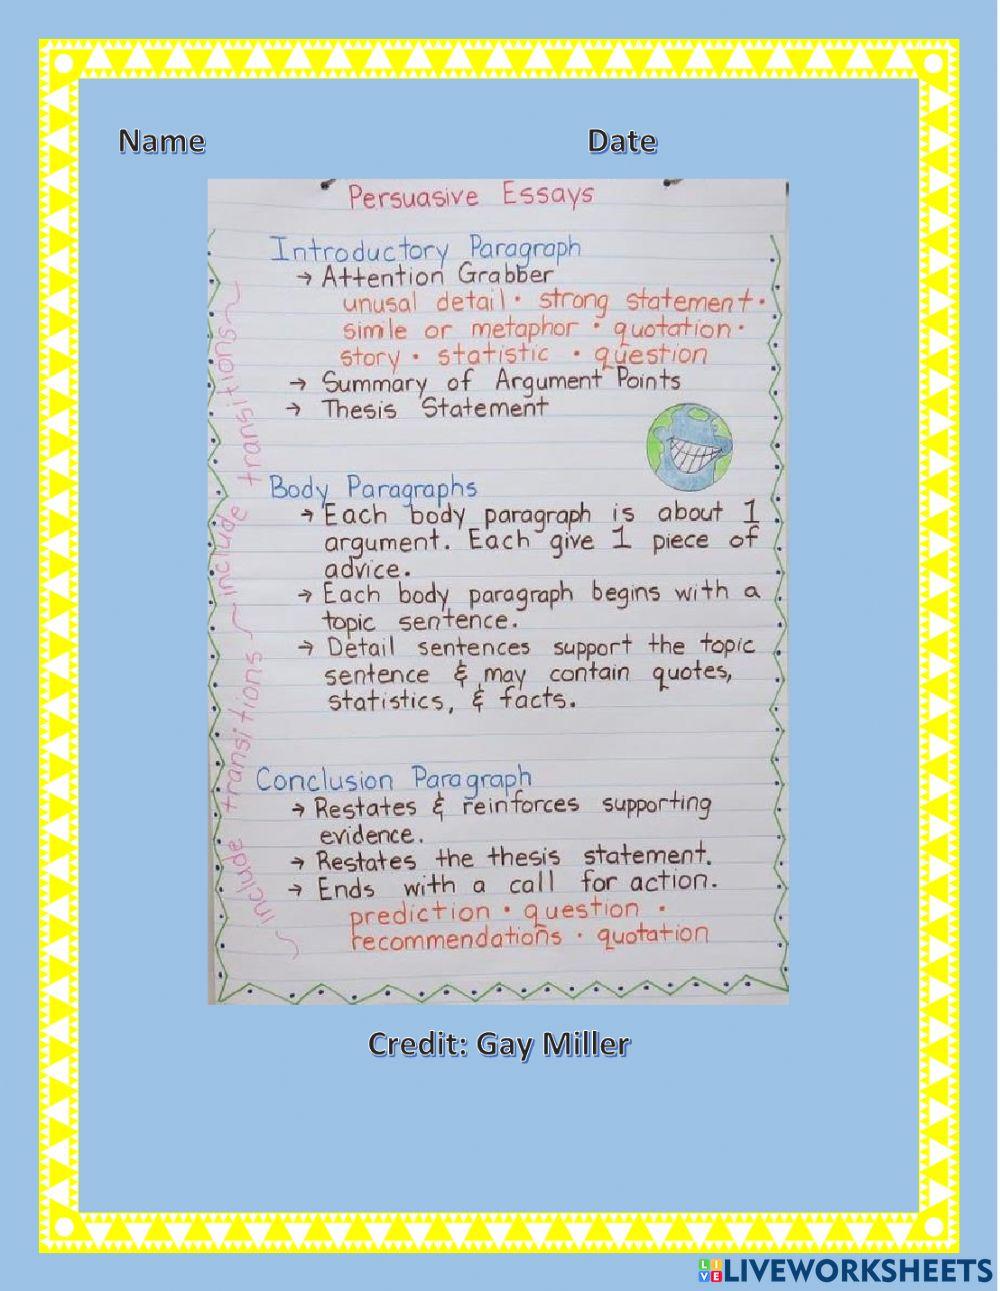 Name Date
Persuasive Essays
Introductory Paragraph
→ Attention Grabber
unusal detail · strong statement ·
simile or metaphor · quotation ·
story · statistic · question
→ Summary of Argument Points
→ Thesis Statement
Body Paragraphs
→ Each body paragraph is about 1
argument. Each give 1 piece of
advice.
→ Each body paragraph begins with a
topic sentence.
→ Detail sentences support the topic
sentence & may contain quotes,
statistics, & facts.
Conclusion Paragraph
→ Restates & reinforces supporting
evidence.
→ Restates the thesis statement.
→ Ends with a call for action.
prediction · question ·
recommendations · quotation
~ include transitions ~ include transitions ~
Credit: Gay Miller
LIVE LIVEWORKSHEETS